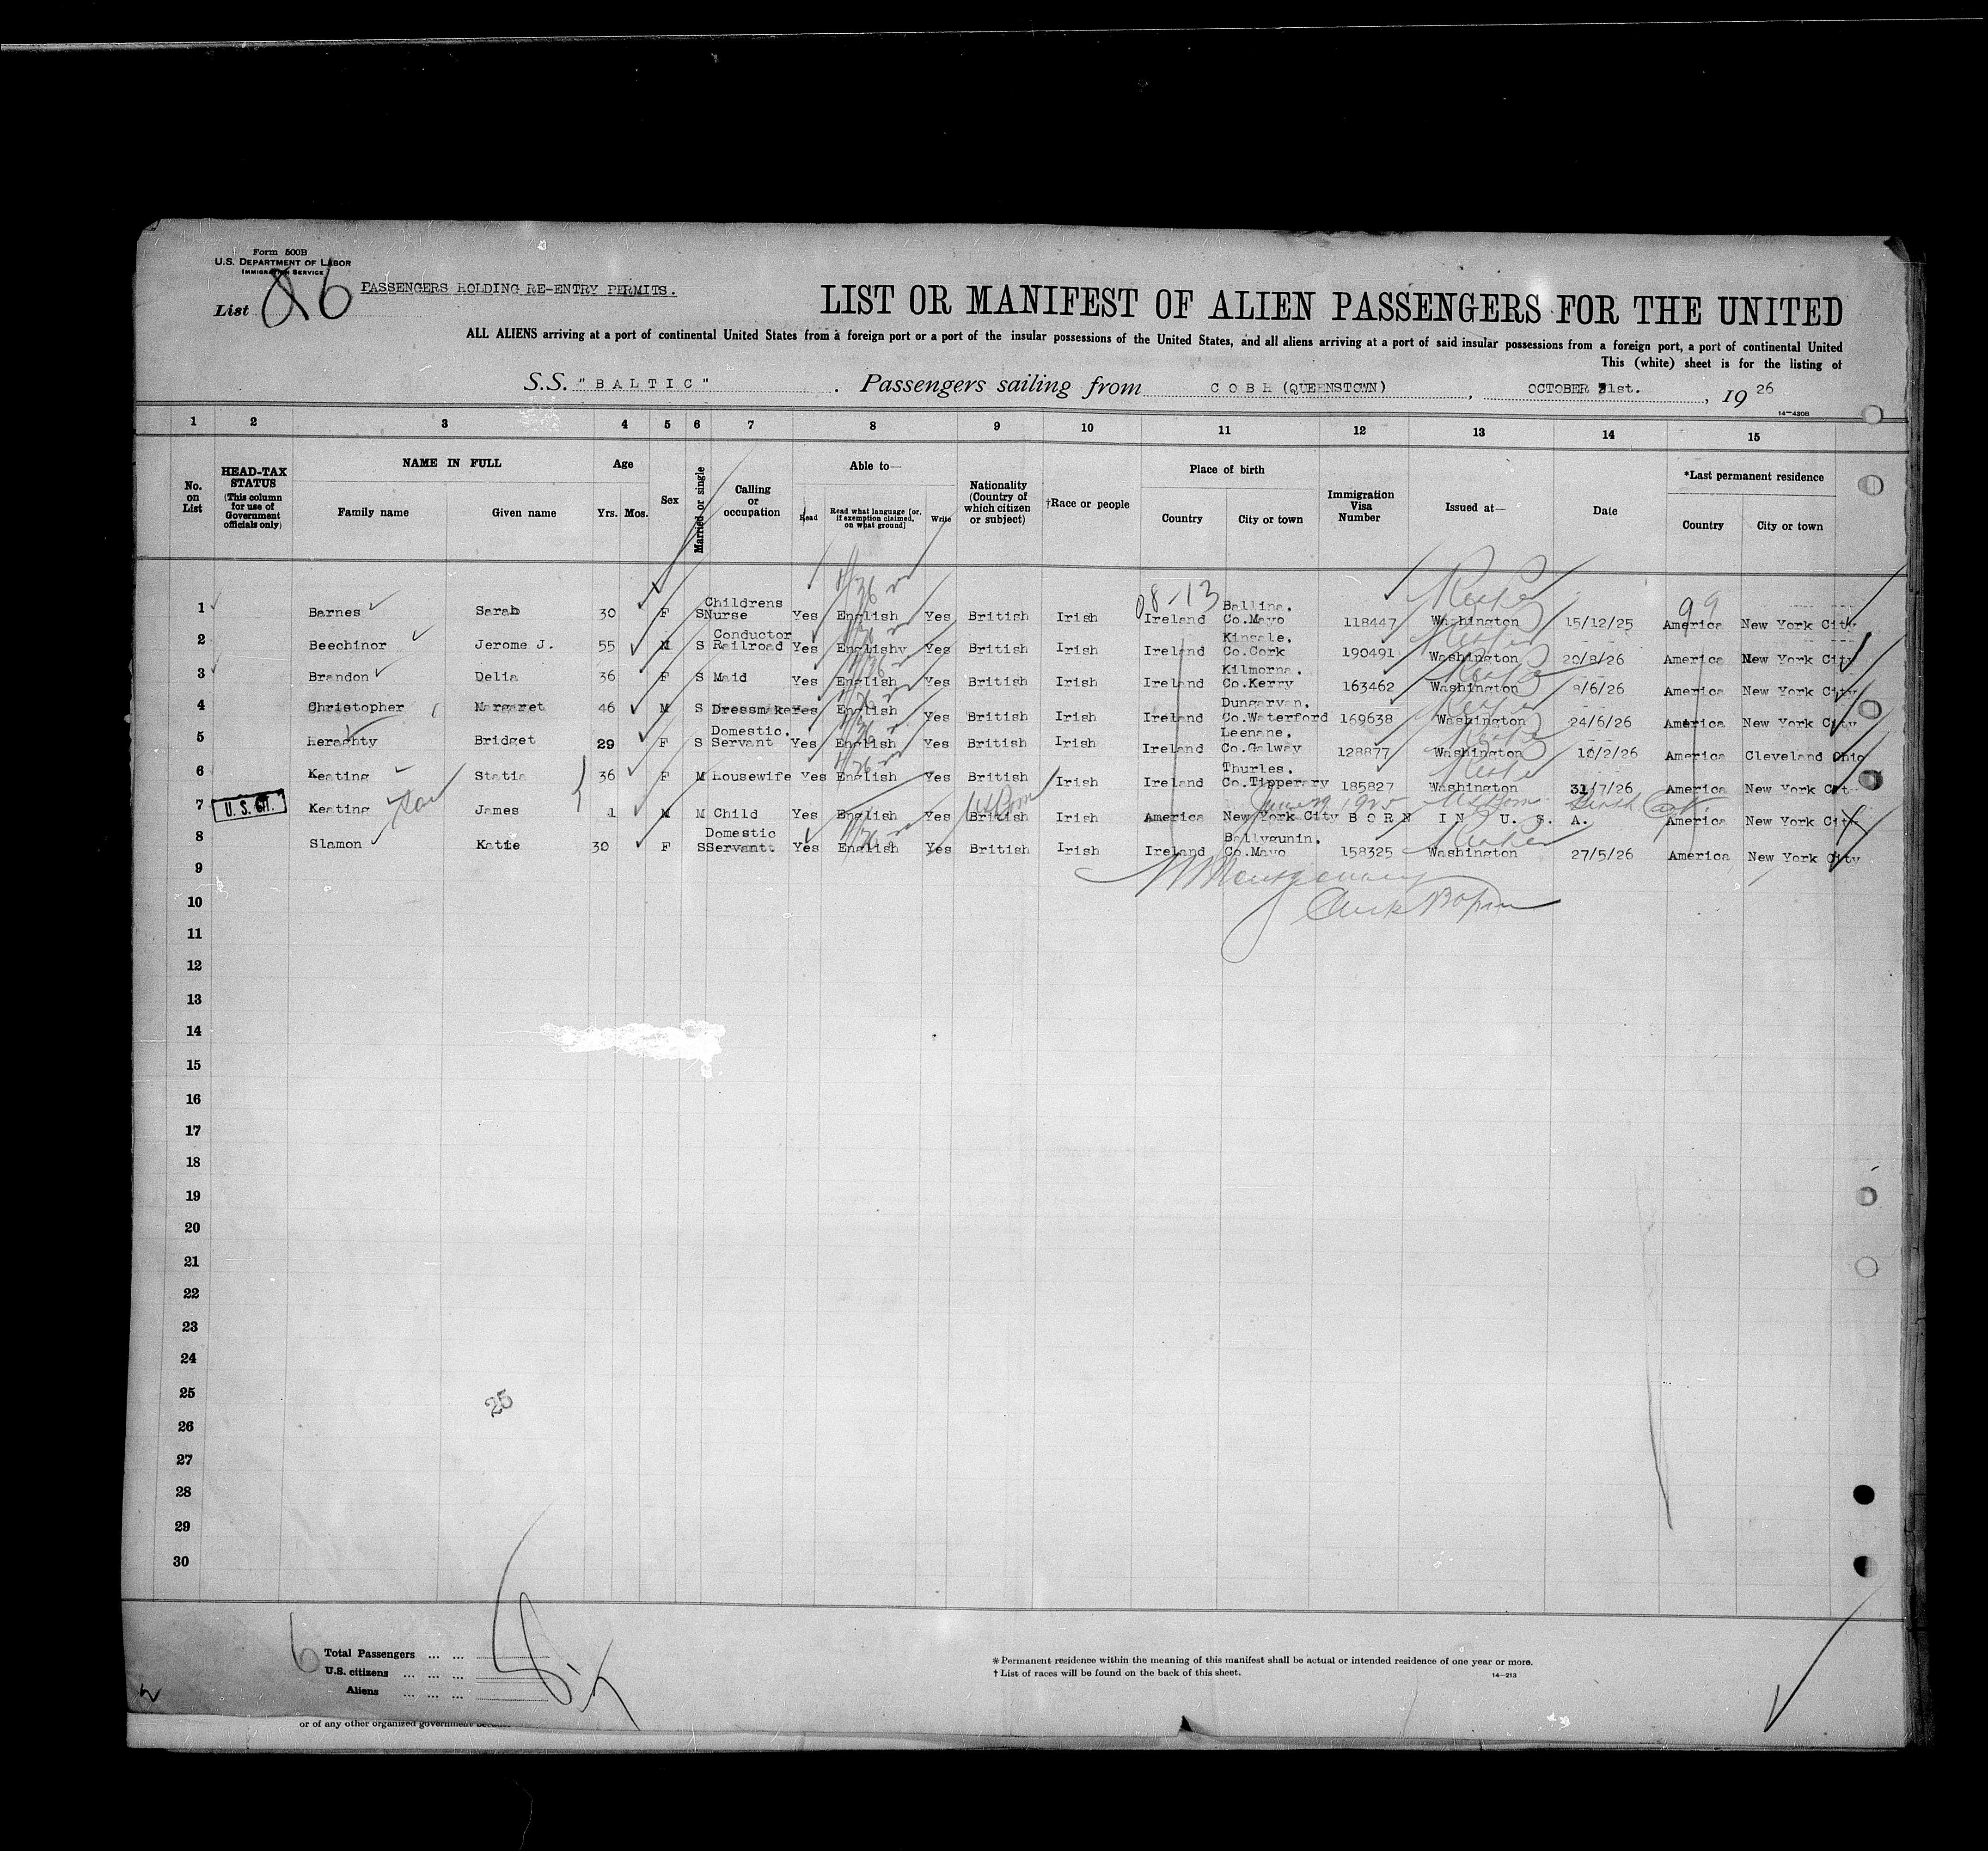 Form 500B
U.S. DEPARTMENT OF LABOR
IMMIGRATION SERVICE
List 86 PASSENGERS HOLDING RE-ENTRY PERMITS.
LIST OR MANIFEST OF ALIEN PASSENGERS FOR THE UNITED
ALL ALIENS arriving at a port of continental United States from a foreign port or a port of the insular possessions of the United States, and all aliens arriving at a port of said insular possessions from a foreign port, a port of continental United
This (white) sheet is for the listing of
S.S. "BALTIC" . Passengers sailing from COBH (QUEENSTOWN), OCTOBER 31st. , 1926
14—4208
1 2 3 4 5 6 7 8 9 10 11 12 13 14 15
No. on List
HEAD-TAX STATUS (This column for use of Government officials only)
NAME IN FULL
Family name Given name
Age
Yrs. Mos.
Sex
Married or single
Calling or occupation
Able to—
Read Read what language (or, if exemption claimed, on what ground) Write
Nationality (Country of which citizen or subject)
†Race or people
Place of birth
Country City or town
Immigration Visa Number
Issued at—
Date
*Last permanent residence
Country City or town
08-13 99
1 Barnes Sarah 30 F S Childrens Nurse Yes English Yes British Irish Ireland Ballina. Co.Mayo 118447 Washington 15/12/25 America New York City
2 Beechinor Jerome J. 55 M S Conductor Railroad Yes English Yes British Irish Ireland Kinsale. Co.Cork 190491 Washington 20/8/26 America New York City
3 Brandon Delia 36 F S Maid Yes English Yes British Irish Ireland Kilmorna. Co.Kerry 163462 Washington 8/6/26 America New York City
4 Christopher Margaret 46 M S Dressmaker Yes English Yes British Irish Ireland Dungarvan. Co.Waterford 169638 Washington 24/6/26 America New York City
5 Heraghty Bridget 29 F S Domestic. Servant Yes English Yes British Irish Ireland Leenane. Co.Galway 128877 Washington 10/2/26 America Cleveland Ohio
6 Keating Statia 36 F M Housewife Yes English Yes British Irish Ireland Thurles. Co.Tipperary 185827 Washington 31/7/26 America New York City
7 U. S. CIT. Keating son James 1 M M Child Yes English Yes British US Born Irish America New York City June 29 1925 US Born Birth Cert. BORN IN U. S. A. America New York City
8 Slamon Katie 30 F S Domestic Servant. Yes English Yes British Irish Ireland Ballygunin. Co.Mayo 158325 Washington 27/5/26 America New York City
9
10
11
12
13
14
15
16
17
18
19
20
21
22
23
24
25
25
26
27
28
29
30
6
Total Passengers ... ...
U.S. citizens ... ... ...
Aliens ... ... ...
*Permanent residence within the meaning of this manifest shall be actual or intended residence of one year or more.
†List of races will be found on the back of this sheet.
14—213
or of any other organized government